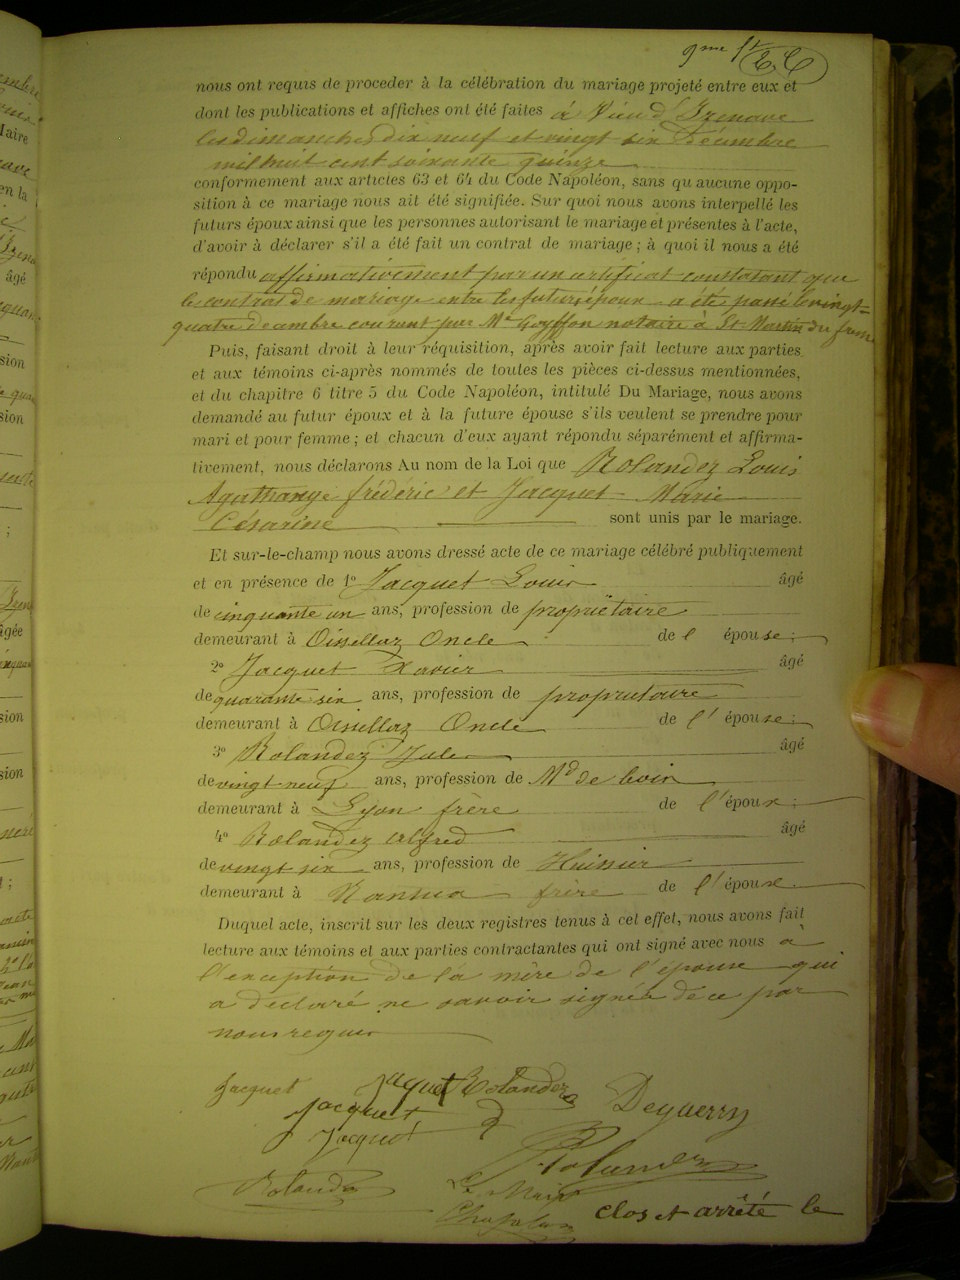 9me ft
nous ont requis de proceder à la célébration du mariage projeté entre eux et
dont les publications et affiches ont été faites à Vieu d'Izenave
les dimanches dix neuf et vingt six décembre
mil huit cent soixante quinze
conformement aux articles 63 et 64 du Code Napoléon, sans qu aucune oppo-
sition à ce mariage nous ait été signifiée. Sur quoi nous avons interpellé les
futurs époux ainsi que les personnes autorisant le mariage et présentes à l'acte,
d'avoir à déclarer s'il a été fait un contrat de mariage ; à quoi il nous a été
répondu affirmativement par un certificat constatant que
le contrat de mariage entre les futurs époux a été passé le vingt-
quatre décembre courant par Me Goyffon notaire à St Martin du frene
Puis, faisant droit à leur réquisition, après avoir fait lecture aux parties
et aux témoins ci-après nommés de toutes les pièces ci-dessus mentionnées,
et du chapitre 6 titre 5 du Code Napoléon, intitulé Du Mariage, nous avons
demandé au futur époux et à la future épouse s'ils veulent se prendre pour
mari et pour femme ; et chacun d'eux ayant répondu séparément et affirma-
tivement, nous déclarons Au nom de la Loi que Rolandez Louis
Agathange frédéric et Jacquet Marie
Césarine sont unis par le mariage.
Et sur-le-champ nous avons dressé acte de ce mariage célébré publiquement
et en présence de 1º Jacquet Louis âgé
de cinquante un ans, profession de propriétaire
demeurant à Oisellaz Oncle de l épouse ;
2º Jacquet Xavier âgé
de quarante six ans, profession de propriétaire
demeurant à Oisellaz Oncle de l' épouse ;
3º Rolandez Jules âgé
de vingt neuf ans, profession de Md de bois
demeurant à Lyon frère de l'époux ;
4º Rolandez Alfred âgé
de vingt six ans, profession de Huissier
demeurant à Nantua frère de l'époux
Duquel acte, inscrit sur les deux registres tenus à cet effet, nous avons fait
lecture aux témoins et aux parties contractantes qui ont signé avec nous à
l'exception de la mère de l'épouse qui
a déclaré ne savoir signer de ce par
nous requis
Jacquet Jaquet Rolandez
Jacquet Deguerry
Jacquet Rolandez
Rolandez Le Maire
clos et arrêté le